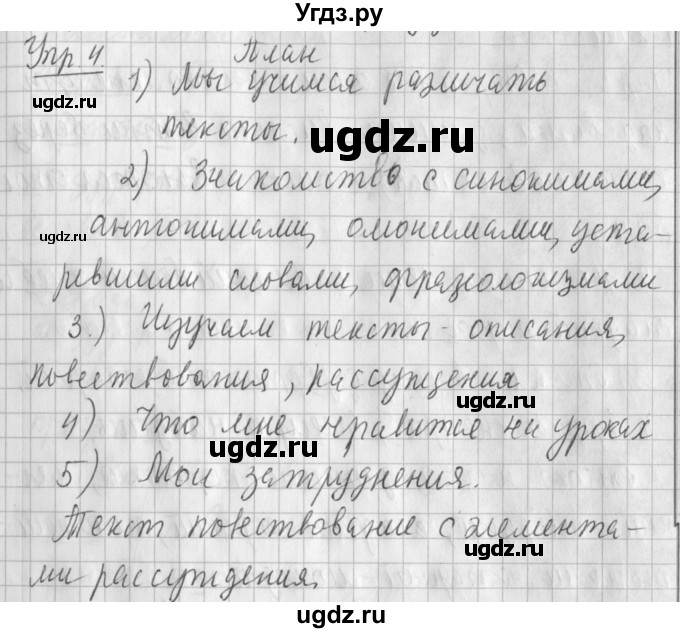 Угдз.ру
Упр 4. План
1) Мы учимся различать
ugdz.ru
тексты.
ugdz.ru
2) Знакомство с синонимами,
ugdz.ru антонимами, омонимами, уста-
ревшими словами, фразеологизмами
3.) Изучаем тексты - описания,
повествования, рассуждения
ugdz.ru
4) Что мне нравится на уроках
ugdz.ru
5) Мои затруднения.
Текст повествование с элемента-
ugdz.ru
ми рассуждения.
ugdz.ru